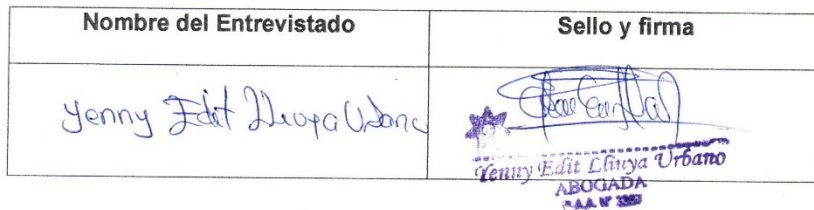 Nombre del Entrevistado
Sello y firma
Yenny Edit Lluya Urbano
Yenny Edit Lliuya Urbano
ABOGADA
C.A.A. Nº